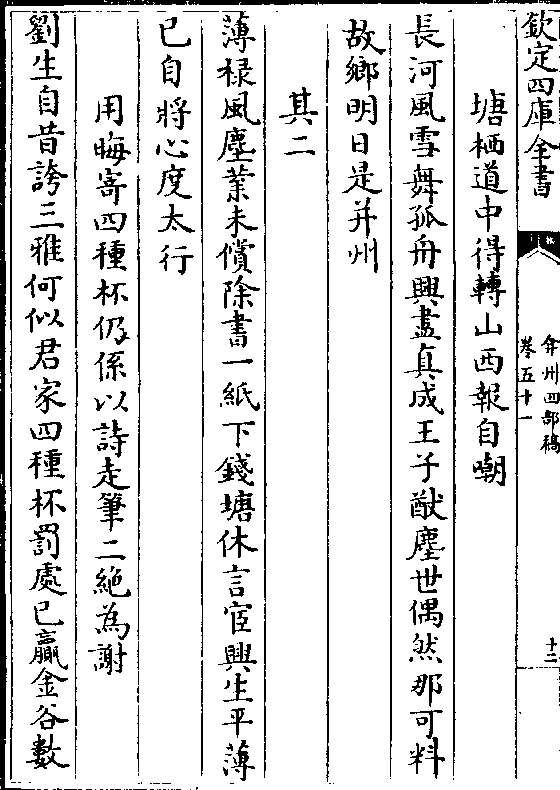 欽定四庫全書
弇州四部稿
卷五十一
十二
塘栖道中得轉山西報自嘲
長河風雪舞孤舟興盡真成王子猷塵世偶然那可料
故鄉明日是并州
其二
薄祿風塵業未償除書一紙下錢塘休言宦興生平薄
已自將心度太行
用晦寄四種杯仍係以詩走筆二絶為謝
劉生自昔誇三雅何似君家四種杯罰處已贏金谷數